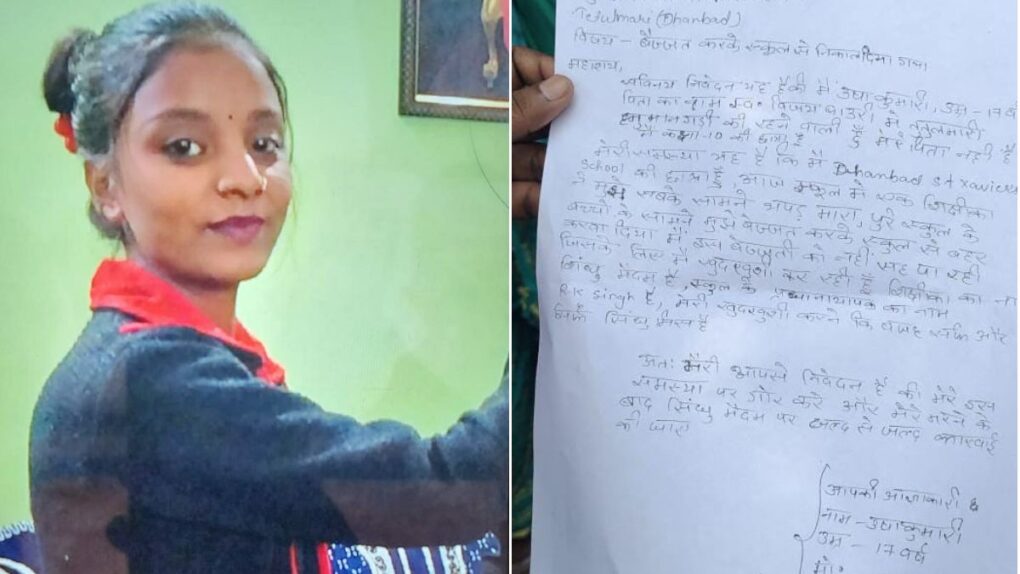 Tetulmari (Dhanbad)
विषय - बेज्जत करके स्कूल से निकाल दिया गया
महाशय,
सविनय निवेदन यह है की मैं उषा कुमारी, उम्र - 17 व
पिता का नाम स्व० विजय बाउरी मैं तेतुलमारी
हनुमानगढ़ी की रहने वाली हूँ मेरे पिता नही है
मैं कक्षा-10 की छात्रा है
मेरी समस्या यह है कि मैं Dhanbad St Xavier
School की छात्रा हूँ आज स्कूल मे एक शिक्षीका
ने मुझे सबके सामने थपड़ मारा, पुरे स्कूल के
बच्चों के सामने मुझे बेज्जत करके, स्कूल से बहर
करवा दिया मैं, इस बेजती को नही सह पा रही
जिसके लिए मैं खुदखुशी कर रही हूँ शिक्षीका का ना
सिंधु मेदम है, स्कूल के प्रधानाध्यापक का नाम
R.K singh है, मेरी खुदखुशी करने कि वजह सर्फ और
सिर्फ सिंधु मिस है
अतः मेरी आपसे निवेदन है की मेरे इस
समस्या पर गौर करे और मेरे मरने के
बाद सिंधु मेदम पर जल्द से जल्द कारवाई
की जाए
आपकी आज्ञाकारी
नाम - उषा कुमारी
उम्र - 17 वर्ष
मो: